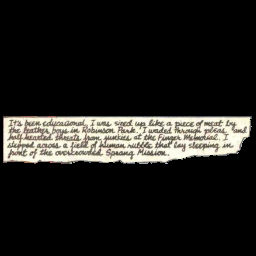 It's been educational. I was sized up like a piece of meat by
the leather boys in Robinson Park. I waded through pleas and
half-hearted threats from junkies at the Finger Memorial. I
stepped across a field of human rubble that lay sleeping in
front of the overcrowded Sprang Mission.